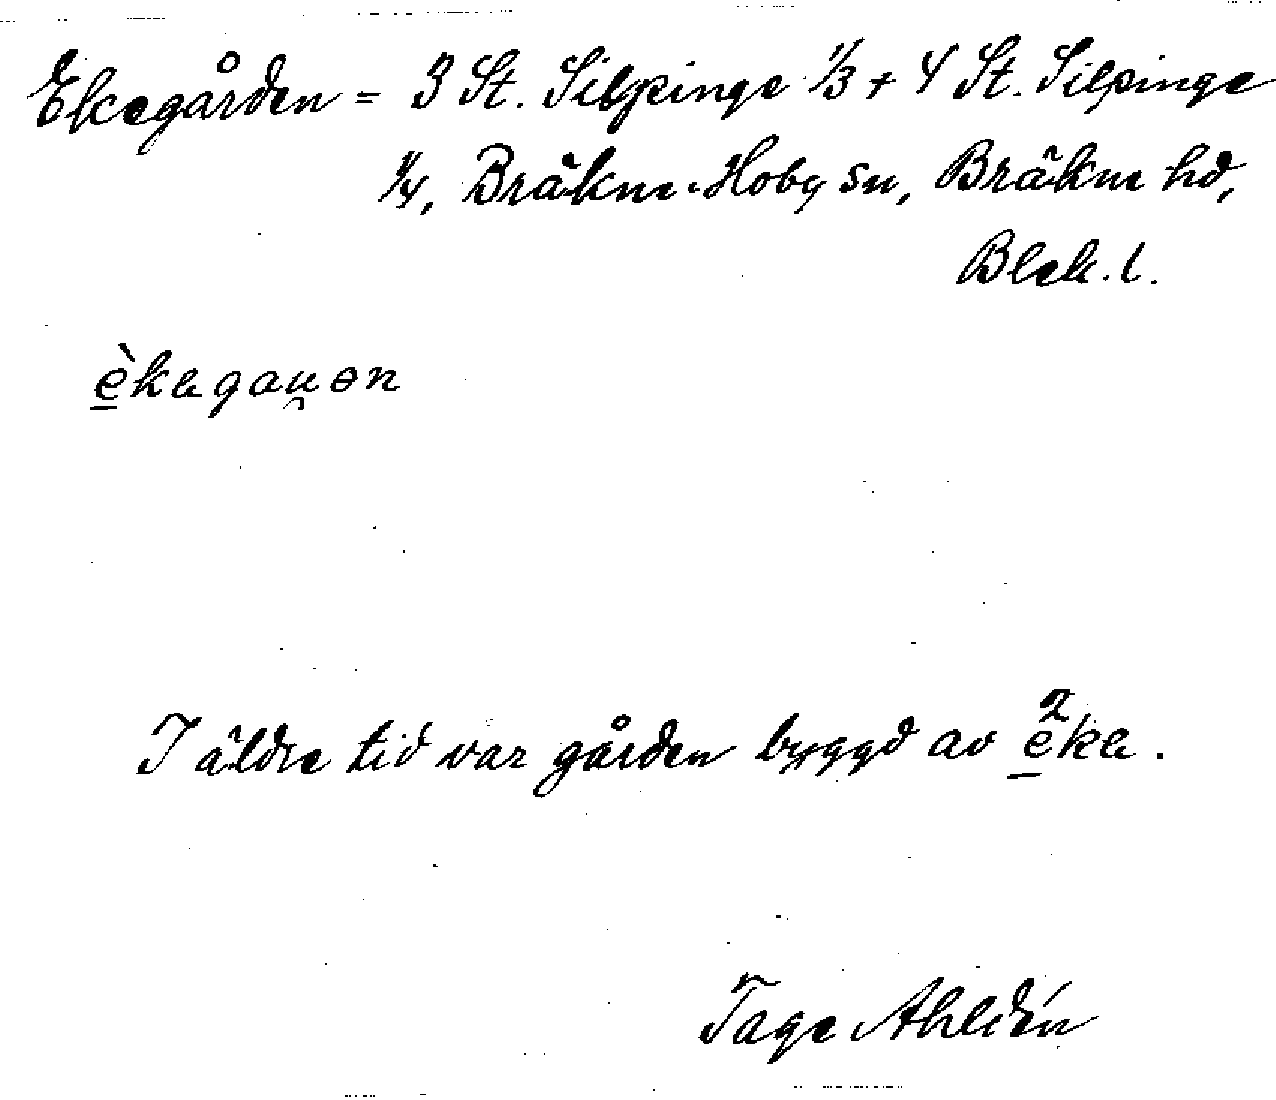 Ekegården = 3 St. Silpinge 1/3 + 4 St. Silpinge
1/4, Bräkne-Hoby sn, Bräkne hd,
Blek. l.
è̱kegau̯ən
I äldre tid var gården byggd av e̱²ke.
Tage Ahldén